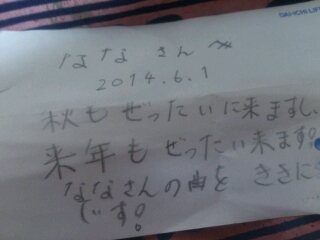 DAI-ICHI LIFE
ななさんへ
2014.6.1
秋もぜったいに来ますし、
来年もぜったい来ます!
ななさんの曲をききに
です!